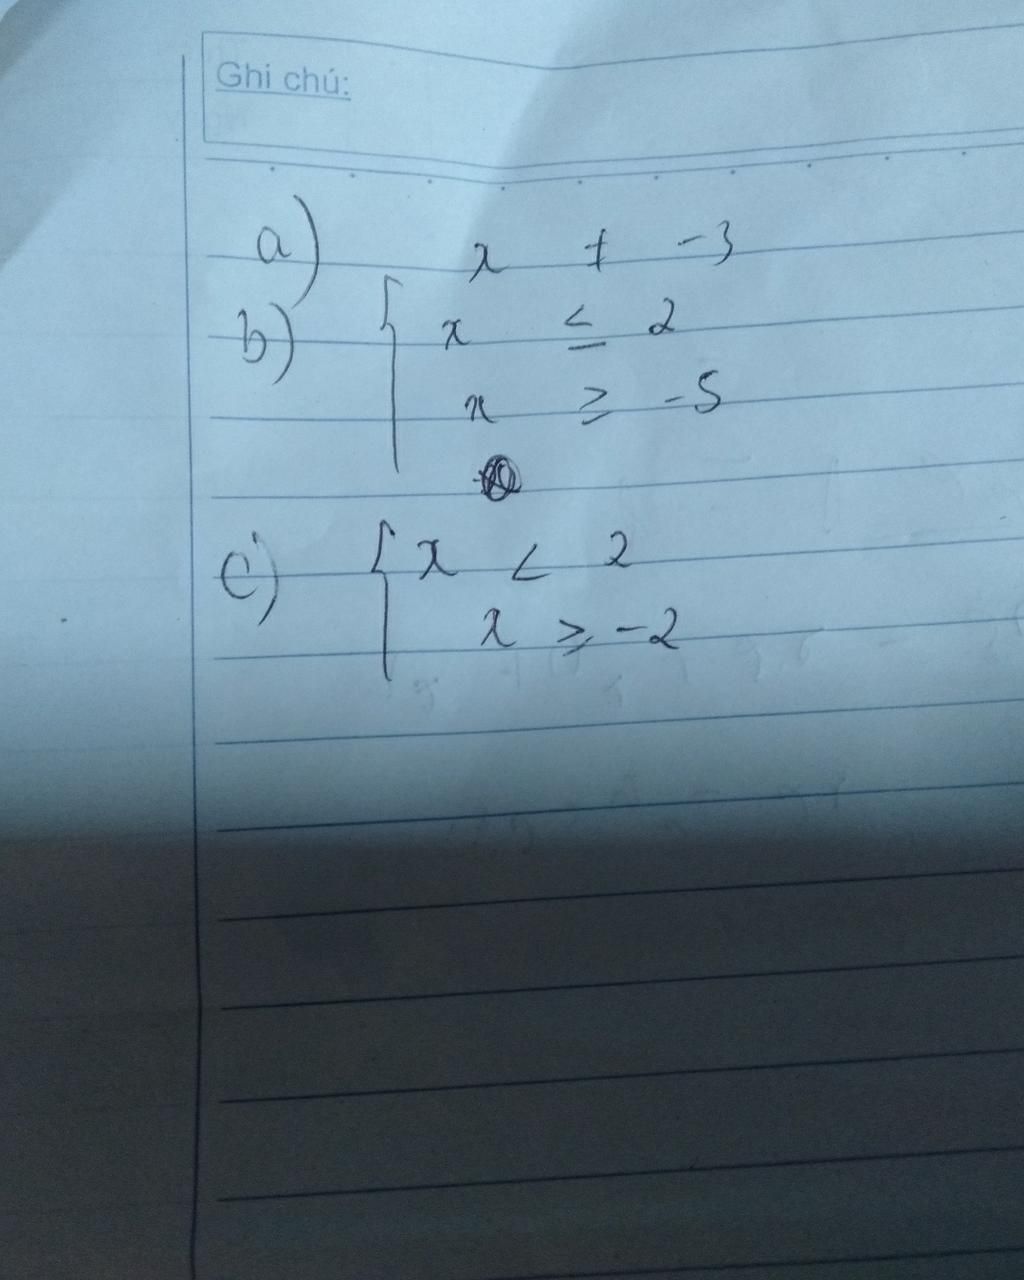 Ghi chú:
a) x ≠ -3
b) { x ≤ 2
x ≥ -5
c) { x < 2
x ≥ -2